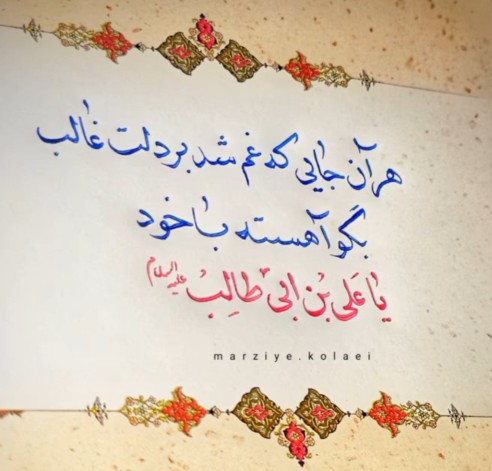 هر آن جایی که غم شد بر دلت غالب
بگو آهسته با خود
یا عَلی بْن ابی طالِبْ علیه السلام
marziye.kolaei